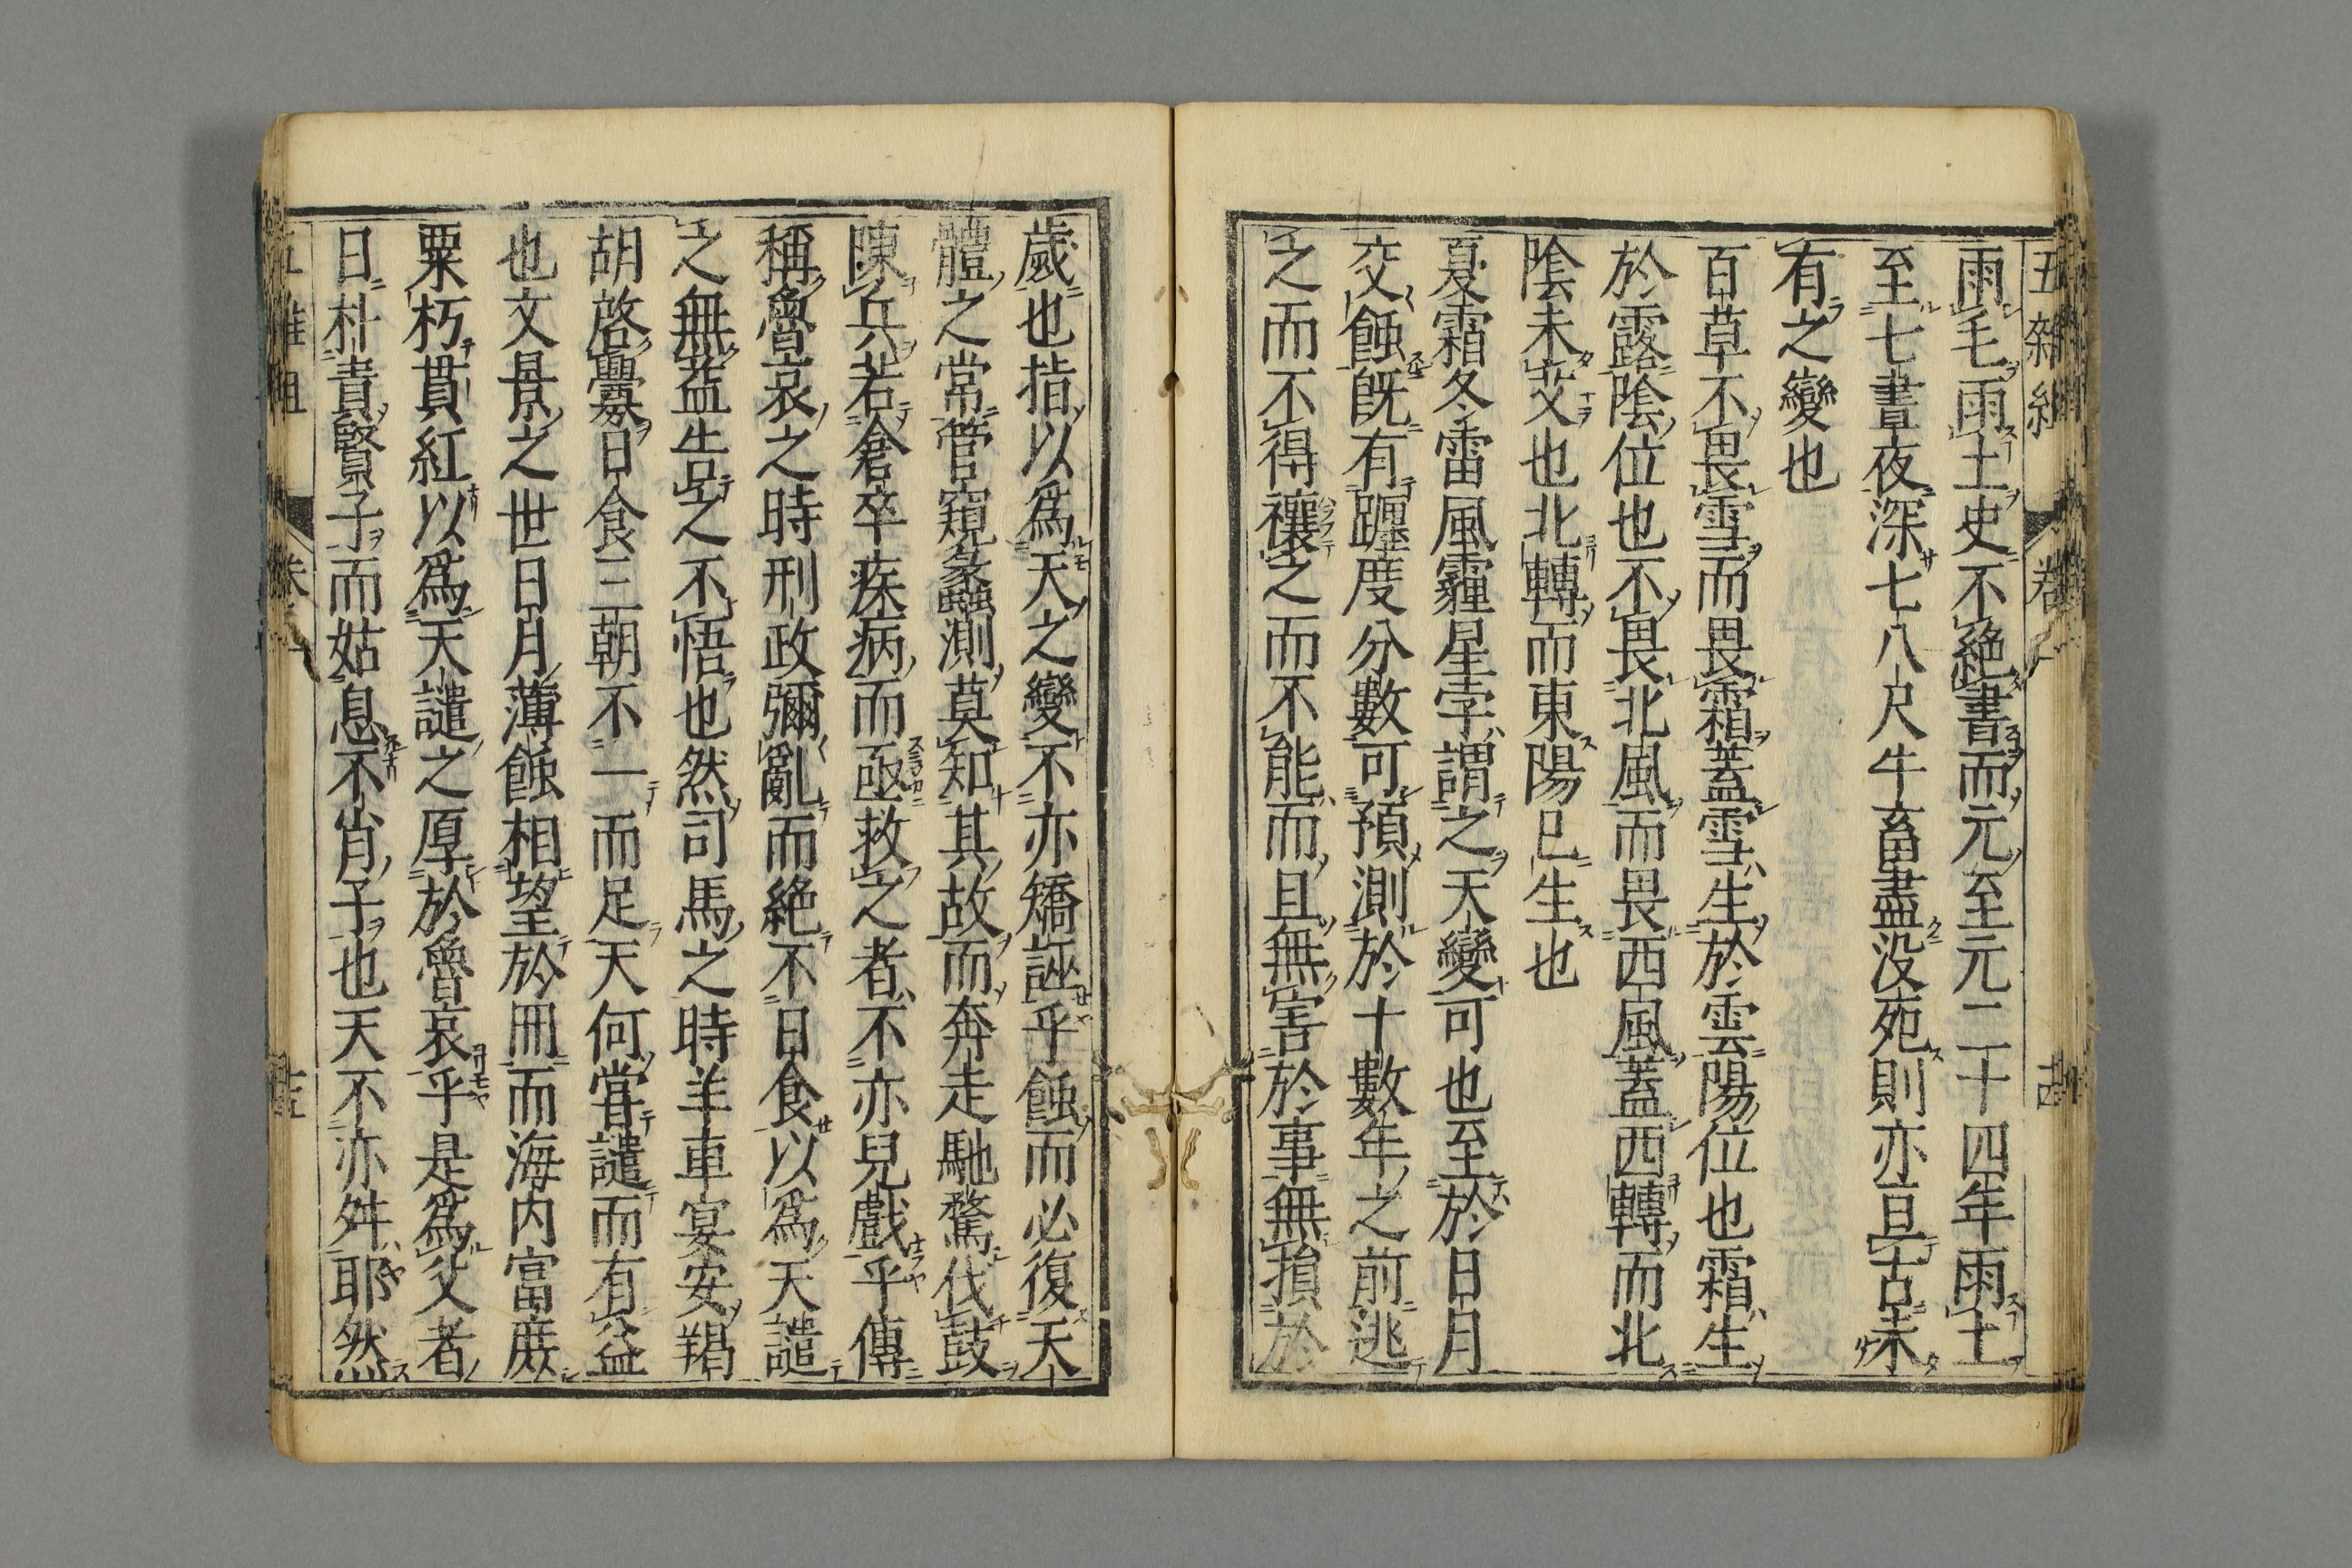 五雜組 卷
雨毛雨土史不絕書而元至元二十四年雨土
至七晝夜深七八尺牛畜盡沒死則亦亘古未
有之變也
百草不畏雪而畏霜蓋雪生於雲陽位也霜生
於露陰位也不畏北風而畏西風蓋西轉而北
陰未艾也北轉而東陽已生也
夏霜冬雷風霾星孛謂之天變可也至於日月
交蝕旣有躔度分數可預測於十數年之前逃
之而不得禳之而不能而且無害於事無損於
歲也指以爲天之變不亦矯誣乎蝕而必復天
體之常管窺蠡測莫知其故而奔走馳騖伐鼓
陳兵若倉卒疾病而亟救之者不亦兒戲乎傳
稱魯哀之時刑政彌亂而絕不日食以爲天譴
之無益告之不悟也然司馬之時羊車宴安羯
胡啓釁日食三朝不一而足天何嘗譴而有益
也文景之世日月薄蝕相望於冊而海内富庶
粟朽貫紅以爲天譴之厚於魯哀乎是爲父者
日朴責賢子而姑息不肖子也天不亦舛耶然